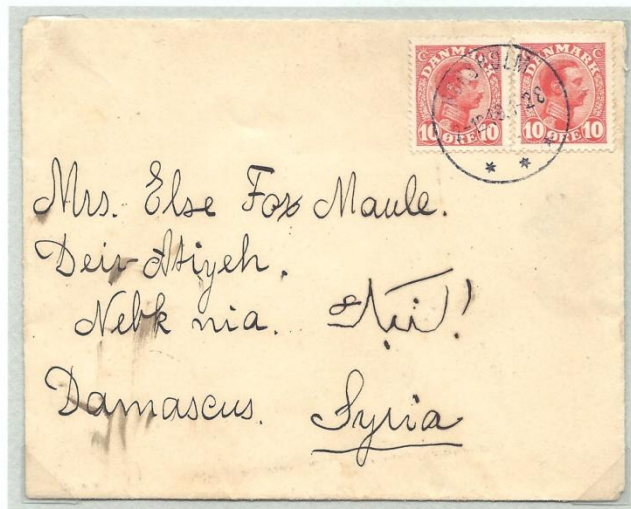 DANMARK DANMARK
10 ØRE 10 10 ØRE 10
Mrs. Else Fox Maule.
Deir-Atiyeh.
Nebk nia. النبك!
Damascus. Syria